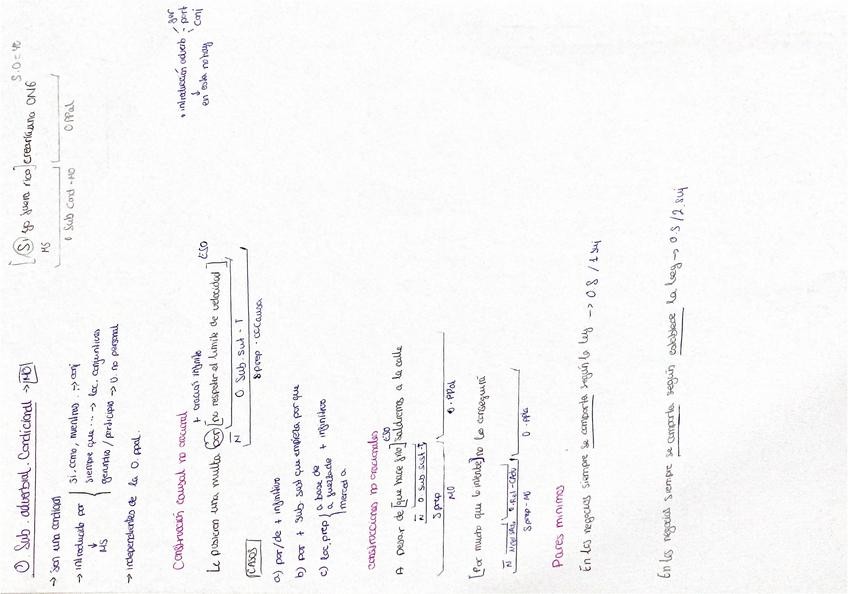 ① Sub. adverbial. Condicional → MO
→ son una condición
→ introducido por { si, como, mientras... → conj
siempre que ... → loc. conjuntivas
gerundio / participio → v. no personal
↓
MS
→ independientes de la O. ppal.
[(Si) yo fuera rico] crearía una ONG S:O = yo
MS
O Sub Cond - MO O. PPal
Construcción causal no oracional
+ oración infinito
Le pusieron una multa (por) [no respetar el límite de velocidad] ESO
N O Sub. sust - T
S prep - CCCausa
• introducción adverb
↓
en esta no hay
CASOS
a) por/de + infinitivo
b) por + sub. sust que empieza por que
c) loc. prep { a base de
a fuerza de + infinitivo
merced a
Construcciones no oracionales
ESO
A pesar de [que hace frío] saldremos a la calle
N O sub. sust - T
S prep
MO O. PPal
[Por mucho que lo intente] no lo conseguirá
N
S prep - MO O. PPal
Pares mínimos
En los negocios siempre se comporta según la ley → O.S / 1 suj
En los negocios siempre se comporta según establece la ley → O.S / 2. suj